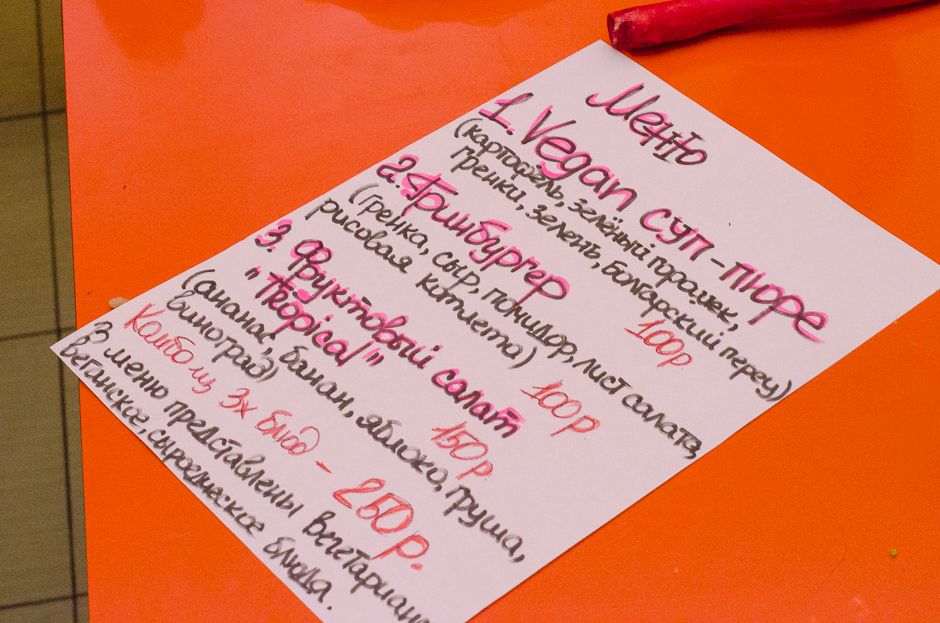 Меню
1. Vegan суп-пюре
(картофель, зелёный горошек,
гренки, зелень, болгарский перец)
100р
2. Гришбургер
(гренка, сыр, помидор, лист салата,
рисовая котлета)
100р
3. Фруктовый салат
"Tropical"
150р
(ананас, банан, яблоко, груша,
виноград)
Комбо из 3х блюд - 250р.
В меню представлены вегетариан
веганское, сыроедческое блюда.